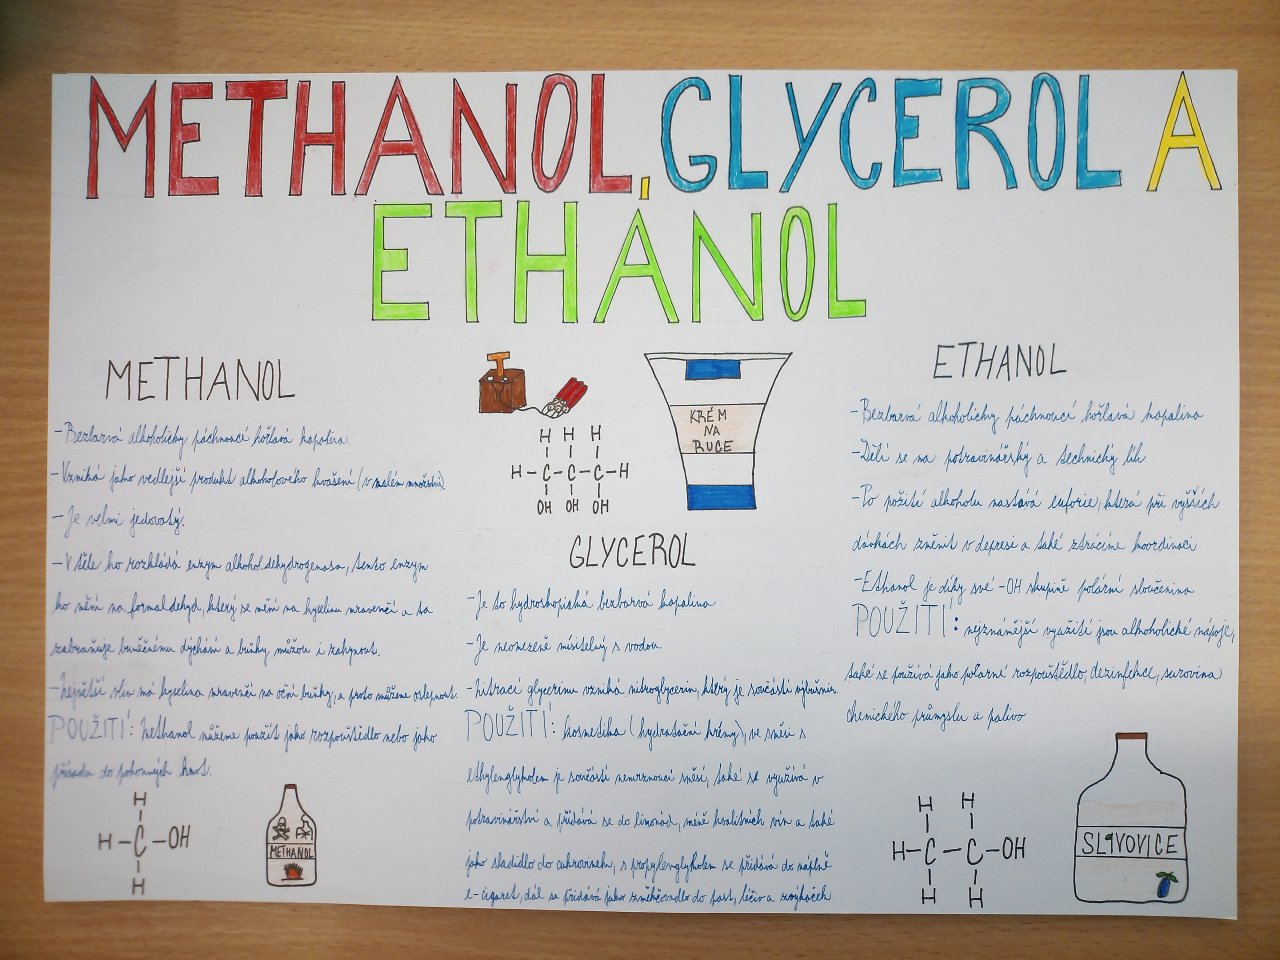 METHANOL, GLYCEROL A
ETHANOL
METHANOL
-Bezbarvá alkoholicky páchnoucí hořlavá kapalina.
-Vzniká jako vedlejší produkt alkoholového kvašení (v malém množství)
-Je velmi jedovatý.
-V těle ho rozkládá enzym alkoholdehydrogenasa, tento enzym
ho mění na formaldehyd, který se mění na kyselinu mravenčí a ta
zabraňuje buněčnému dýchání a buňky můžou i zahynout.
-Největší vliv má kyselina mravenčí na oční buňky, a proto můžeme oslepnout.
POUŽITÍ: Methanol můžeme použít jako rozpouštědlo nebo jako
přísadu do pohonných hmot.
H
H-C-OH
H
METHANOL
KRÉM
NA
RUCE
H H H
H-C-C-C-H
OH OH OH
GLYCEROL
-Je to hydroskopická bezbarvá kapalina
-Je neomezeně mísitelný s vodou
-Nitrací glycerinu vzniká nitroglycerin, který je součástí výbušnin.
POUŽITÍ: kosmetika (hydratační krémy), ve směsi s
ethylenglykolem je součástí nemrznoucí směsi, také se využívá v
potravinářství a přidává se do limonád, méně kvalitních vín a také
jako sladidlo do cukrovinek, s propylenglykolem se přidává do náplně
e-cigaret, dál se přidává jako změkčovadlo do past, léčiv a žvýkaček
ETHANOL
-Bezbarvá alkoholicky páchnoucí hořlavá kapalina
-Dělí se na potravinářský a technický líh
-Po požití alkoholu nastává euforie, která při vyšších
dávkách změnit v depresi a také ztrácíme koordinaci
-Ethanol je díky své -OH skupině polární sloučenina
POUŽITÍ: nejznámější využití jsou alkoholické nápoje,
také se používá jako polární rozpouštědlo, dezinfekce, surovina
chemického průmyslu a palivo
H H
H-C-C-OH
H H
SLIVOVICE